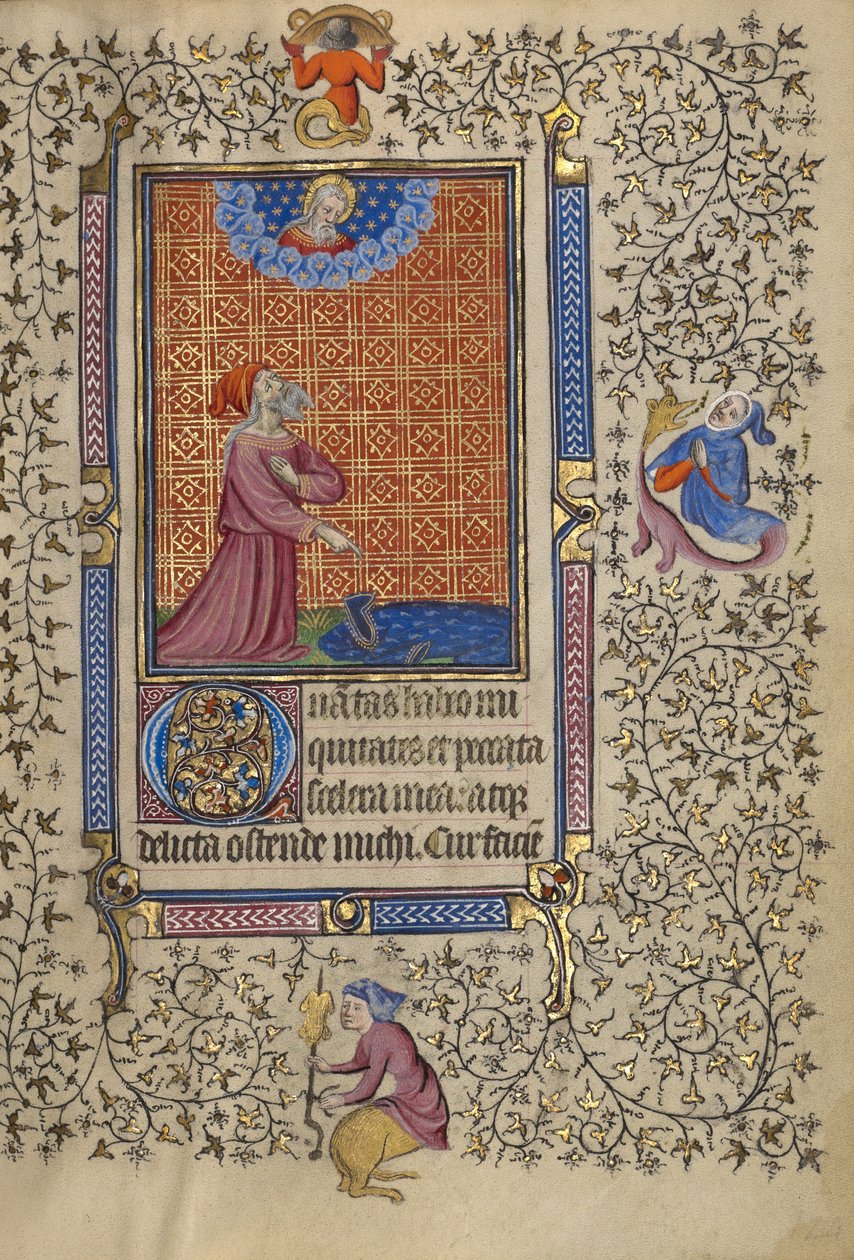 Quātas habeo ini
quitates et peccata
scelera mea: atqꝫ
delicta ostende michi. Cur faciē